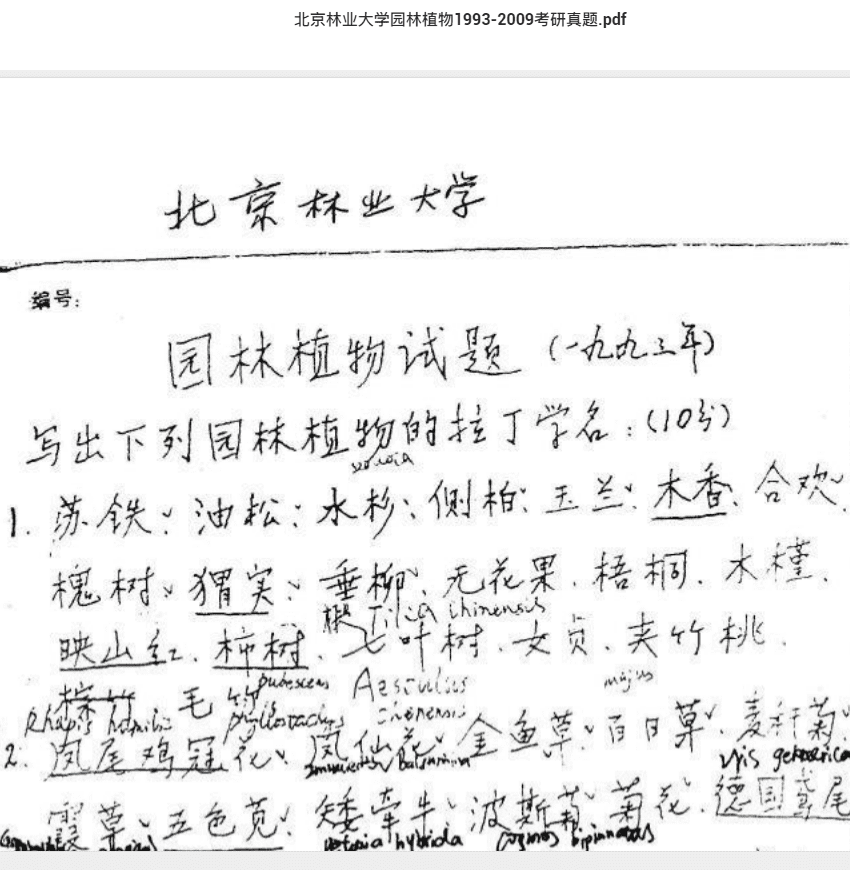 北京林业大学园林植物1993-2009考研真题.pdf
北京林业大学
编号:
园林植物试题(一九九三年)
写出下列园林植物的拉丁学名:(10分)
1. 苏铁、油松、水杉、侧柏、玉兰、木香、合欢、
槐树、猬实、垂柳、无花果、梧桐、木槿、
Tilia chinensis
映山红、柿树、七叶树、女贞、夹竹桃、
pubescens Aesculus majus
棕竹 毛竹
Rhapis humilis phyllostachys chinensis
2. 凤尾鸡冠花、凤仙花、金鱼草、百日草、麦秆菊、
Balsamina
霞草、五色苋、矮牵牛、波斯菊、菊花、德国鸢尾
petunia hybrida Cosmos bipinnatus